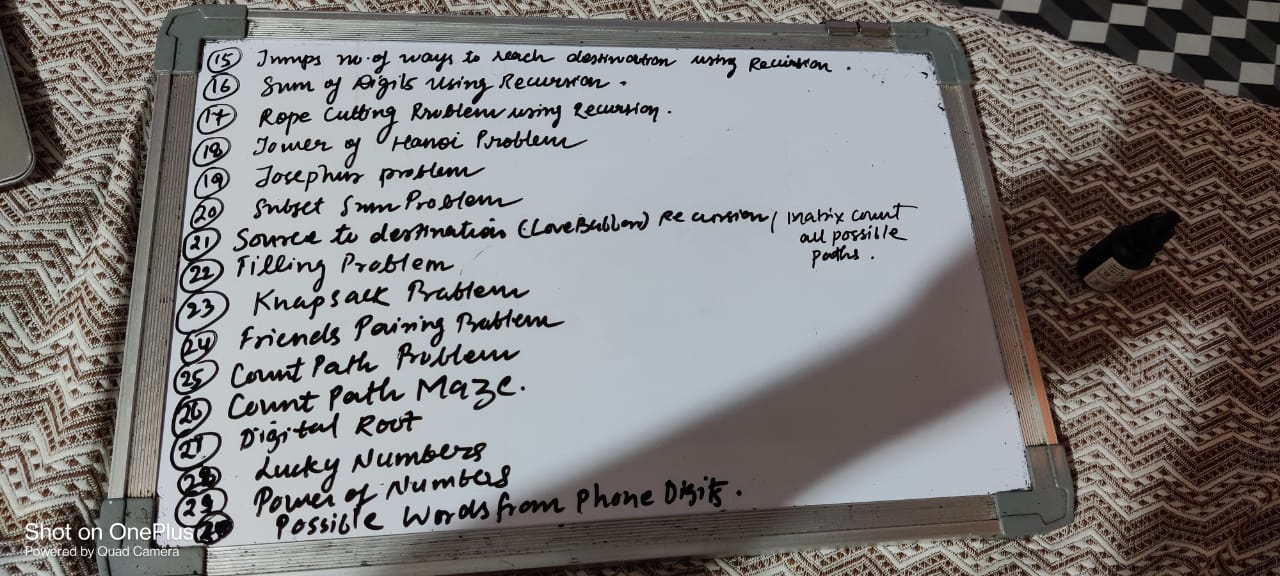 (15) Jumps no. of ways to reach destination using Recursion.
(16) Sum of Digits using Recursion.
(17) Rope Cutting Problem using Recursion.
(18) Tower of Hanoi Problem
(19) Josephus problem
(20) Subset Sum Problem
(21) Source to destination (LoveBabbar) Recursion / matrix count
all possible
paths.
(22) Tilling Problem
(23) Knapsack Problem
(24) Friends Pairing Problem
(25) Count Path Problem
(26) Count Path Maze.
(27) Digital Root
(28) Lucky Numbers
(29) Power of Numbers
Possible Words from Phone Digits.
Shot on OnePlus
Powered by Quad Camera